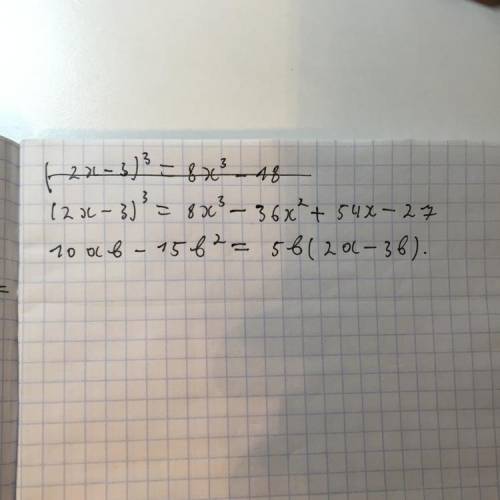 (2x-3)³ = 8x³ - 18
(2x-3)³ = 8x³ - 36x² + 54x - 27
10ab - 15b² = 5b(2a-3b).
=